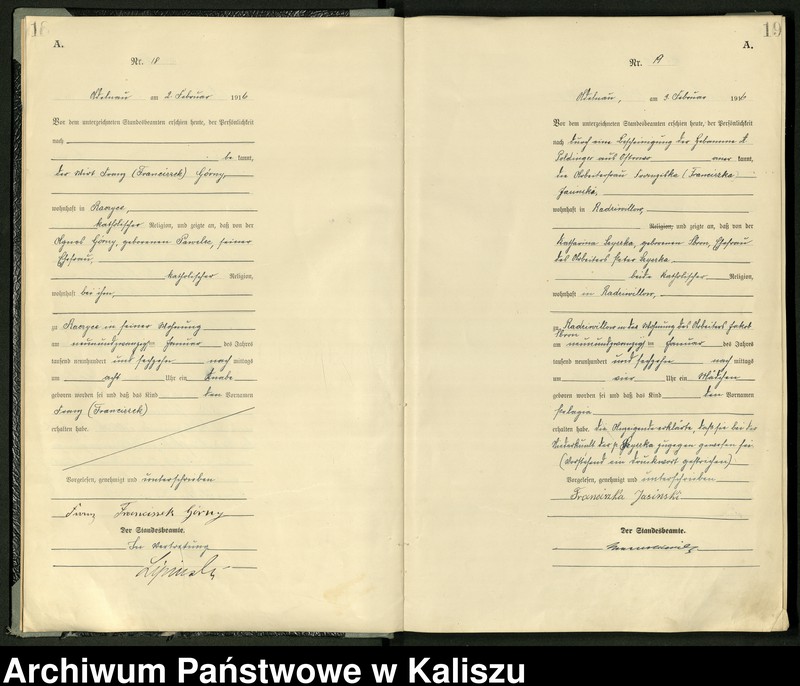 18
A.
Nr. 18
Adelnau am 2. Februar 1916
Vor dem unterzeichneten Standesbeamten erschien heute, der Persönlichkeit
nach
be kannt,
der Wirt Franz (Franciszek) Górny,
wohnhaft in
katholischer Religion, und zeigte an, daß von der
Agnes Górny, geborenen Pawelec, seiner
Ehefrau
katholischer Religion,
wohnhaft bei ihm,
zu in seiner Wohnung
am neunundzwanzigsten Januar des Jahres
tausend neunhundert und sechzehn nach mittags
um acht Uhr ein Knabe
geboren worden sei und daß das Kind den Vornamen
Franz (Franciszek)
erhalten habe.
Vorgelesen, genehmigt und unterschrieben
Franz Franciszek Górny
Der Standesbeamte.
In Vertretung
19
A.
Nr. 19
Adelnau, am 3. Februar 1916
Vor dem unterzeichneten Standesbeamten erschien heute, der Persönlichkeit
nach durch eine Bescheinigung der Hebamme
aus kannt,
die Arbeiterfrau Franziska (Franciszka)
wohnhaft in Radziwillow,
Religion, und zeigte an, daß von der
Katharina geborenen Ehefrau
des Arbeiters Peter
beide katholischer Religion,
wohnhaft in Radziwillow,
zu Radziwillow in der Wohnung des Arbeiters Jakob
am neunundzwanzigsten Januar des Jahres
tausend neunhundert und sechzehn nach mittags
um vier Uhr ein Mädchen
geboren worden sei und daß das Kind den Vornamen
Pelagia
erhalten habe. Die Anzeigende erklärte, daß sie bei der
Niederkunft der zugegen gewesen sei.
(Vorstehend ein Druckwort gestrichen)
Vorgelesen, genehmigt und unterschrieben
Franciszka Jasinski
Der Standesbeamte.
Archiwum Państwowe w Kaliszu